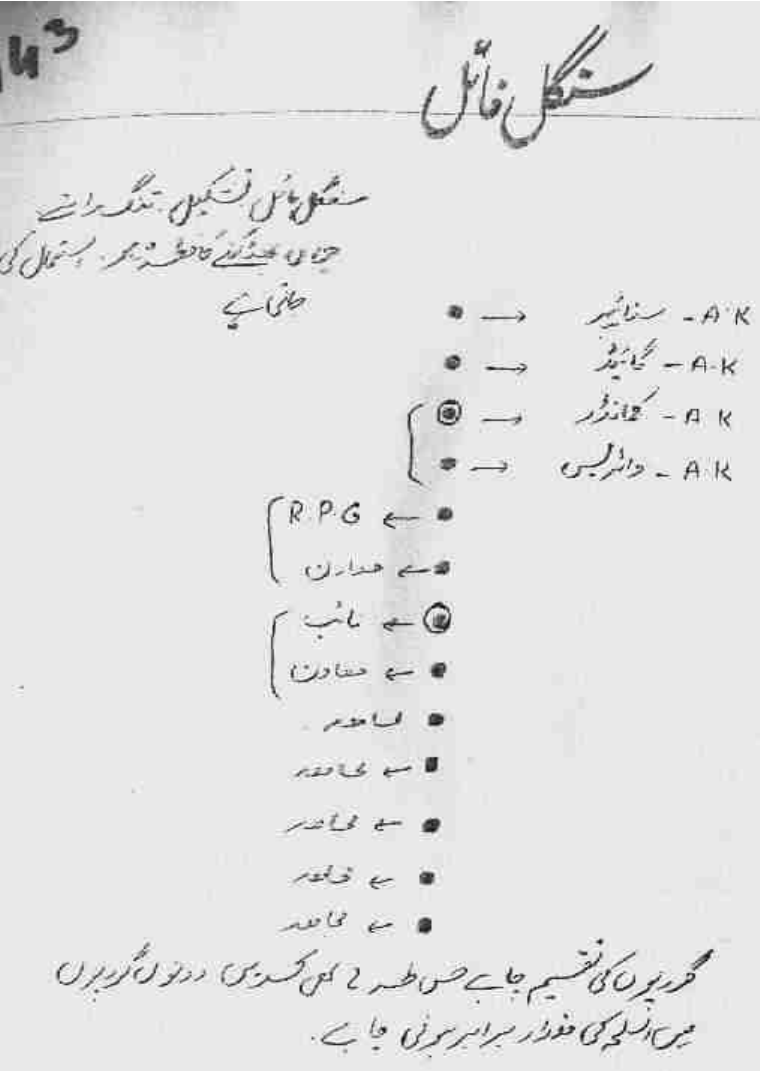 143
سنگل فائل
سنگل فائل تشکیل تنگ راستے
جہاں
جاتی ہے
A.K - سنائپر →
A.K - گائیڈ →
A.K - کمانڈر →
A.K - وائرلیس →
← R.P.G
← معاون
← نائب
← معاون
مجاہد
← مجاہد
← مجاہد
← مجاہد
← مجاہد
گروپوں کی تقسیم چاہے جس طرح دونوں گروپوں
میں اسلحہ کی مقدار برابر ہونی چاہے.